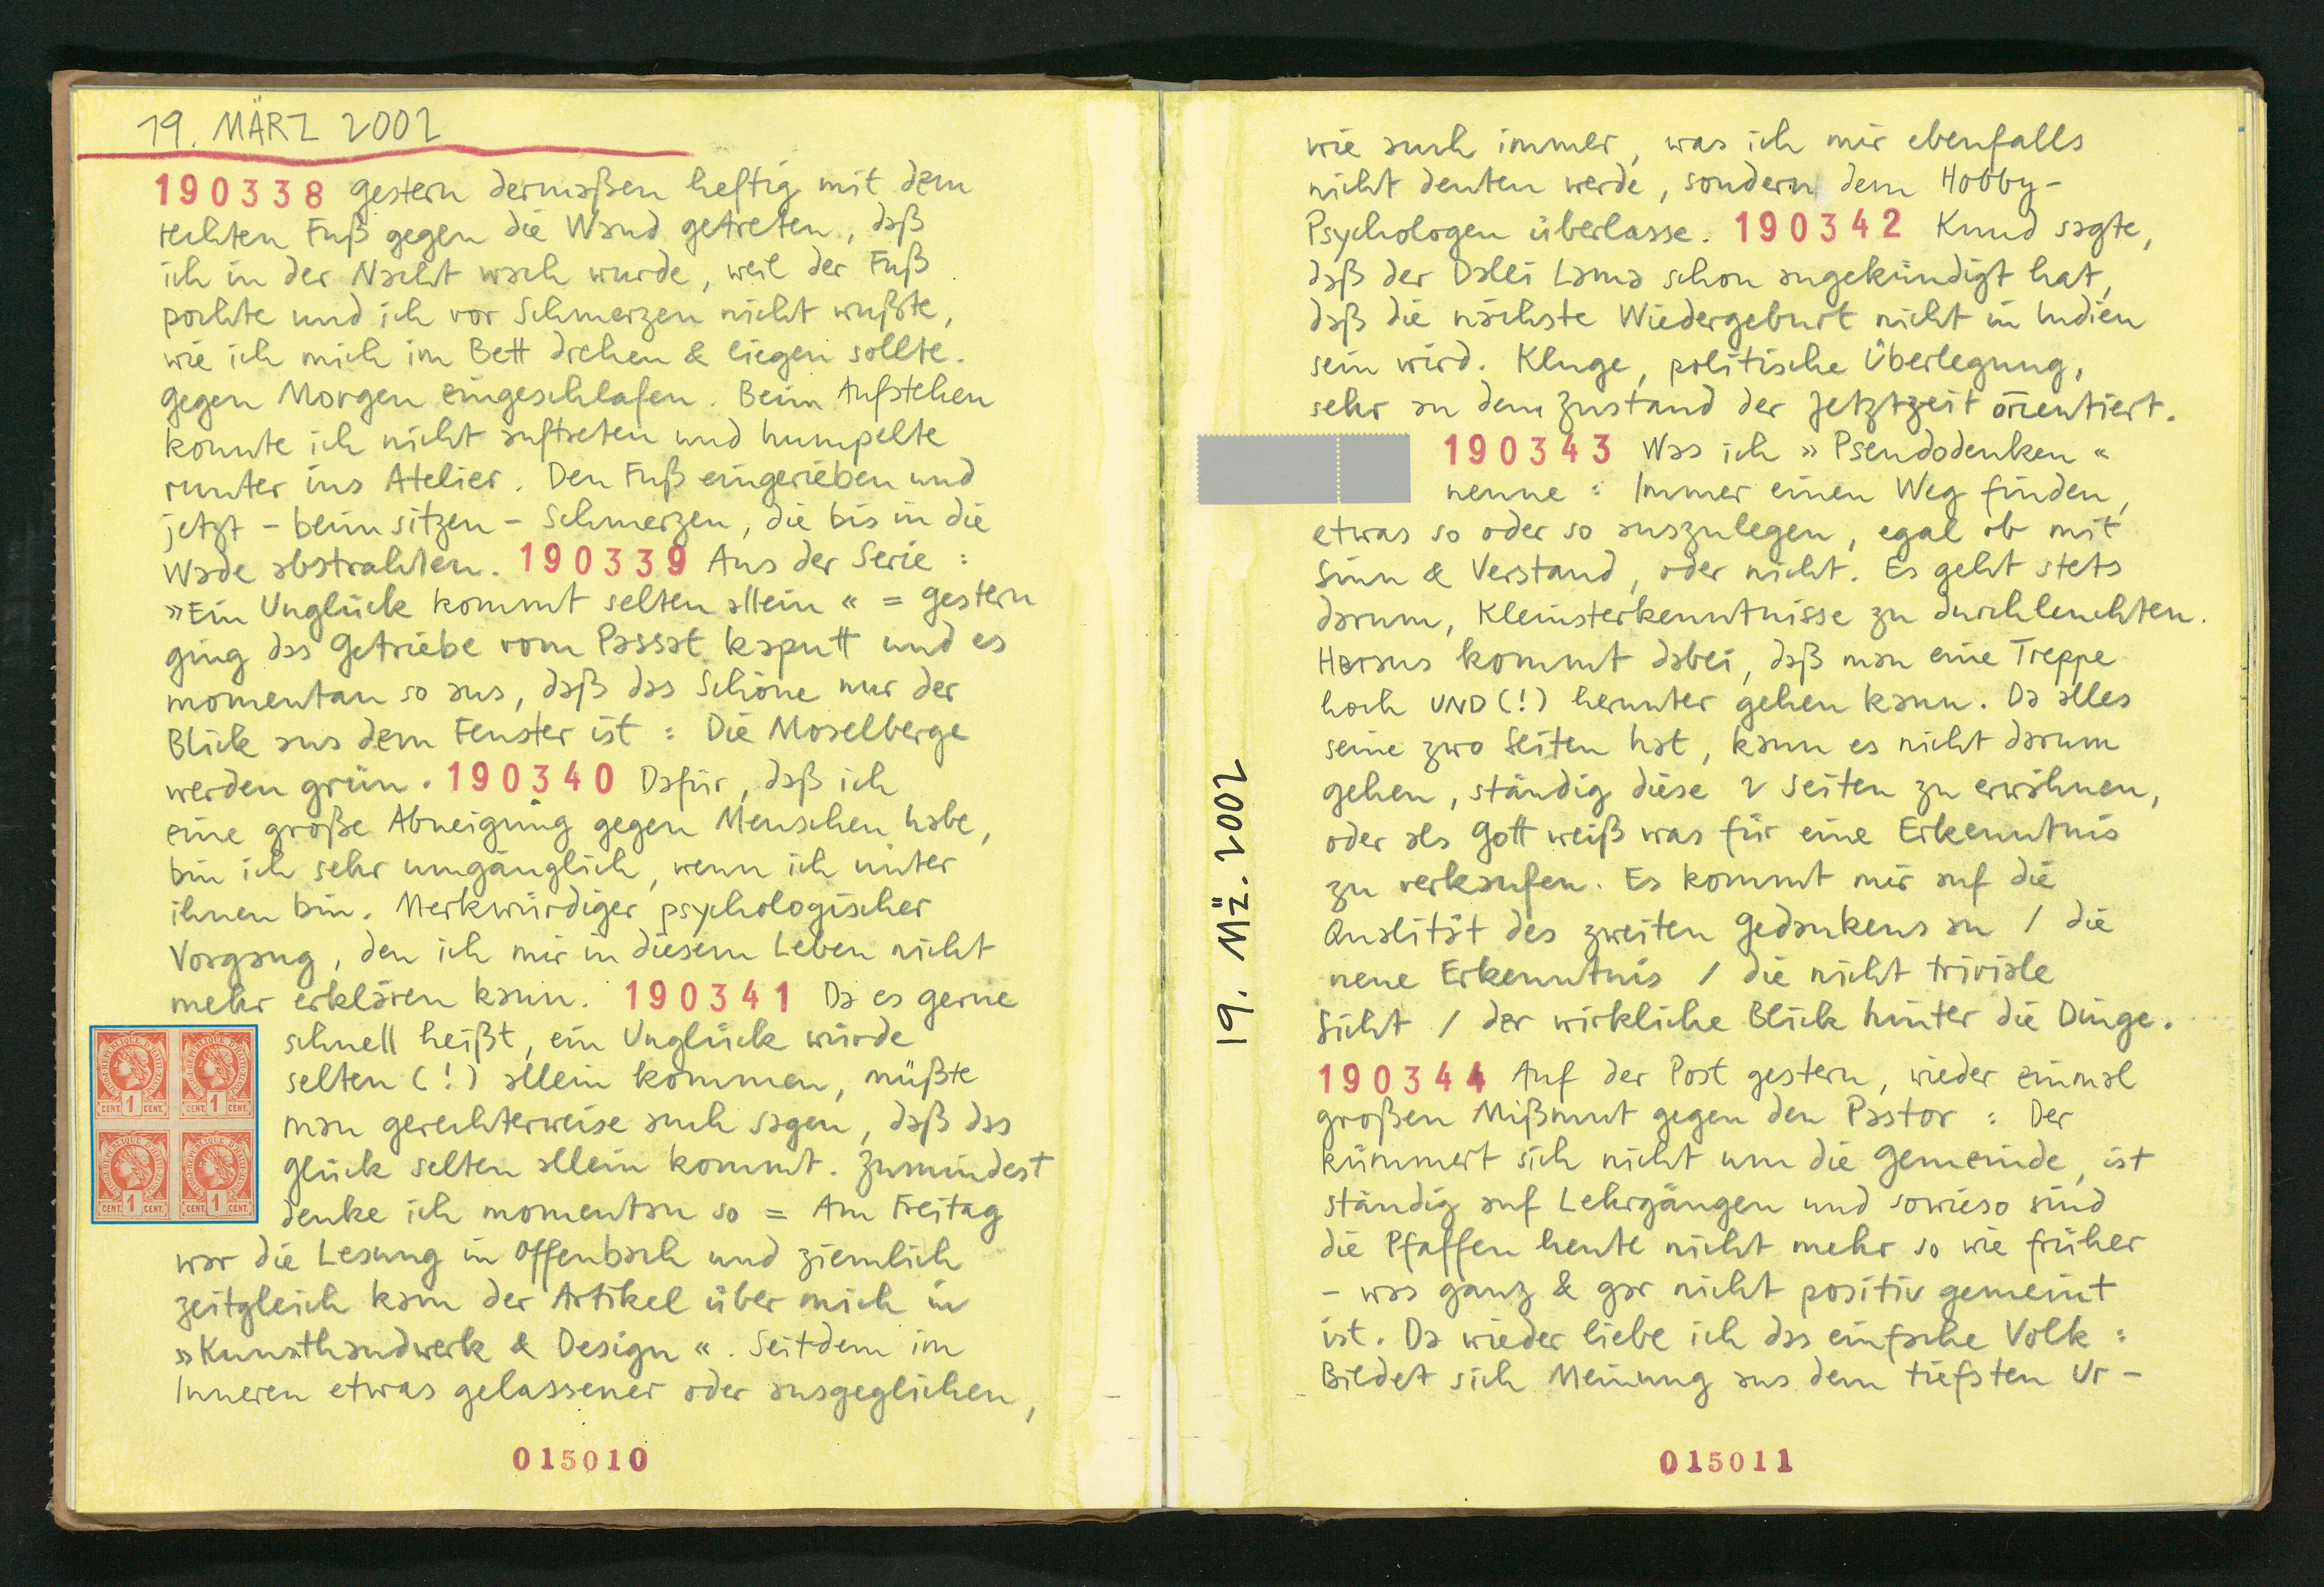 19. MÄRZ 2002
190338 Gestern dermaßen heftig mit dem
rechten Fuß gegen die Wand getreten, daß
ich in der Nacht wach wurde, weil der Fuß
pochte und ich vor Schmerzen nicht wußte,
wie ich mich im Bett drehen & liegen sollte.
Gegen Morgen eingeschlafen. Beim Aufstehen
konnte ich nicht auftreten und humpelte
runter ins Atelier. Den Fuß eingerieben und
jetzt – beim sitzen – Schmerzen, die bis in die
Wade abstrahlen. 190339 Aus der Serie :
»Ein Unglück kommt selten allein« = Gestern
ging das Getriebe vom Passat kaputt und es
momentan so aus, daß das Schöne nur der
Blick aus dem Fenster ist : Die Moselberge
werden grün. 190340 Dafür, daß ich
eine große Abneigung gegen Menschen habe,
bin ich sehr umgänglich, wenn ich unter
ihnen bin. Merkwürdiger psychologischer
Vorgang, den ich mir in diesem Leben nicht
mehr erklären kann. 190341 Da es gerne
schnell heißt, ein Unglück würde
selten (!) allein kommen, müßte
man gerechterweise auch sagen, daß das
Glück selten allein kommt. Zumindest
denke ich momentan so = Am Freitag
war die Lesung in Offenbach und ziemlich
zeitgleich kam der Artikel über mich in
»Kunsthandwerk & Design«. Seitdem im
Inneren etwas gelassener oder ausgeglichen,
RÉPUBLIQUE D'HAITI
CENT. 1 CENT.
RÉPUBLIQUE D'HAITI
CENT. 1 CENT.
RÉPUBLIQUE D'HAITI
CENT. 1 CENT.
RÉPUBLIQUE D'HAITI
CENT. 1 CENT.
015010
19. Mz̈. 2002
wie auch immer, was ich mir ebenfalls
nicht deuten werde, sondern dem Hobby-
Psychologen überlasse. 190342 Knud sagte,
daß der Dalei Lama schon angekündigt hat,
daß die nächste Wiedergeburt nicht in Indien
sein wird. Kluge, politische Überlegung,
sehr an dem Zustand der Jetztzeit orientiert.
190343 Was ich »Pseudodenken«
nenne : Immer einen Weg finden,
etwas so oder so auszulegen, egal ob mit
Sinn & Verstand, oder nicht. Es geht stets
darum, Kleinsterkenntnisse zu durchleuchten.
Heraus kommt dabei, daß man eine Treppe
hoch UND (!) herunter gehen kann. Da alles
seine zwo Seiten hat, kann es nicht darum
gehen, ständig diese 2 Seiten zu erwähnen,
oder als Gott weiß was für eine Erkenntnis
zu verkaufen. Es kommt mir auf die
Qualität des zweiten Gedankens an / die
neue Erkenntnis / die nicht triviale
Sicht / der wirkliche Blick hinter die Dinge.
190344 Auf der Post gestern, wieder einmal
großen Mißmut gegen den Pastor : Der
kümmert sich nicht um die Gemeinde, ist
ständig auf Lehrgängen und sowieso sind
die Pfaffen heute nicht mehr so wie früher
– was ganz & gar nicht positiv gemeint
ist. Da wieder liebe ich das einfache Volk :
Bildet sich Meinung aus dem tiefsten Ur-
015011